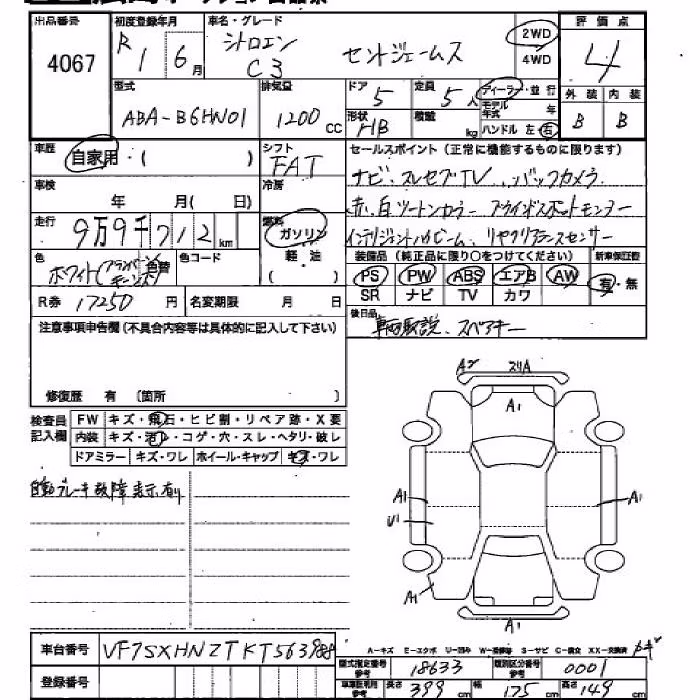 出品番号 初度登録年月 車名・グレード 評価点
4067 R1 6月 シトロエン C3 セントジェームス 2WD 4WD 4
型式 排気量 ドア 定員 ディーラー・並行 外装 内装
ABA-B6HN01 1200cc 5 5人 モデル年式 年 B B
形状 HB 積載 kg ハンドル 左・右
車歴 自家用・( ) シフト FAT セールスポイント(正常に機能するものに限ります)
車検 年 月( 日) 冷房 ナビ、フルセグTV、バックカメラ
走行 9万9千712km 燃料 ガソリン 赤、白ツートンカラー ブラインドスポットモニター
軽油 ( ) インテリジェントハイビーム、リヤクリアランスセンサー
色 ホワイト 色替 色コード 装備品(純正品に限り○をつけてください) 新車保証書
PS PW ABS エアB AW 有・無
R券 17250円 名変期限 月 日 SR ナビ TV カワ
注意事項申告欄(不具合内容等は具体的に記入して下さい) 後日品
車両取説、スペアキー
修復歴 有 〔箇所 〕
検査員記入欄 FW キズ・飛石・ヒビ割・リペア跡・X要
内装 キズ・汚レ・コゲ・穴・スレ・ヘタリ・破レ
ドアミラー キズ・ワレ ホイール・キャップ キズ・ワレ
自動ブレーキ故障表示有り
スリA
A1
A1 A1
A1
A-キズ E-エクボ U-凹み W-補修跡 S-サビ C-腐食 XX-交換済
車台番号
型式指定番号参考 18633 類別区分番号参考 0001
登録番号 車庫証明用参考 長さ 399cm 幅 175cm 高さ 149cm